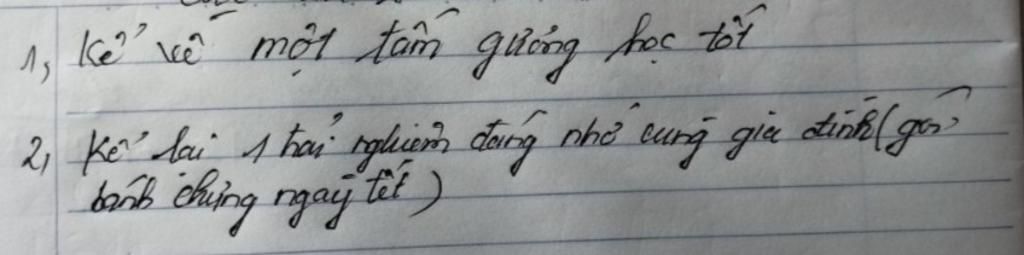 1, Kể về một tấm gương học tốt
2, Kể lại 1 trải nghiệm đáng nhớ cùng gia đình (gói
bánh chưng ngày tết)